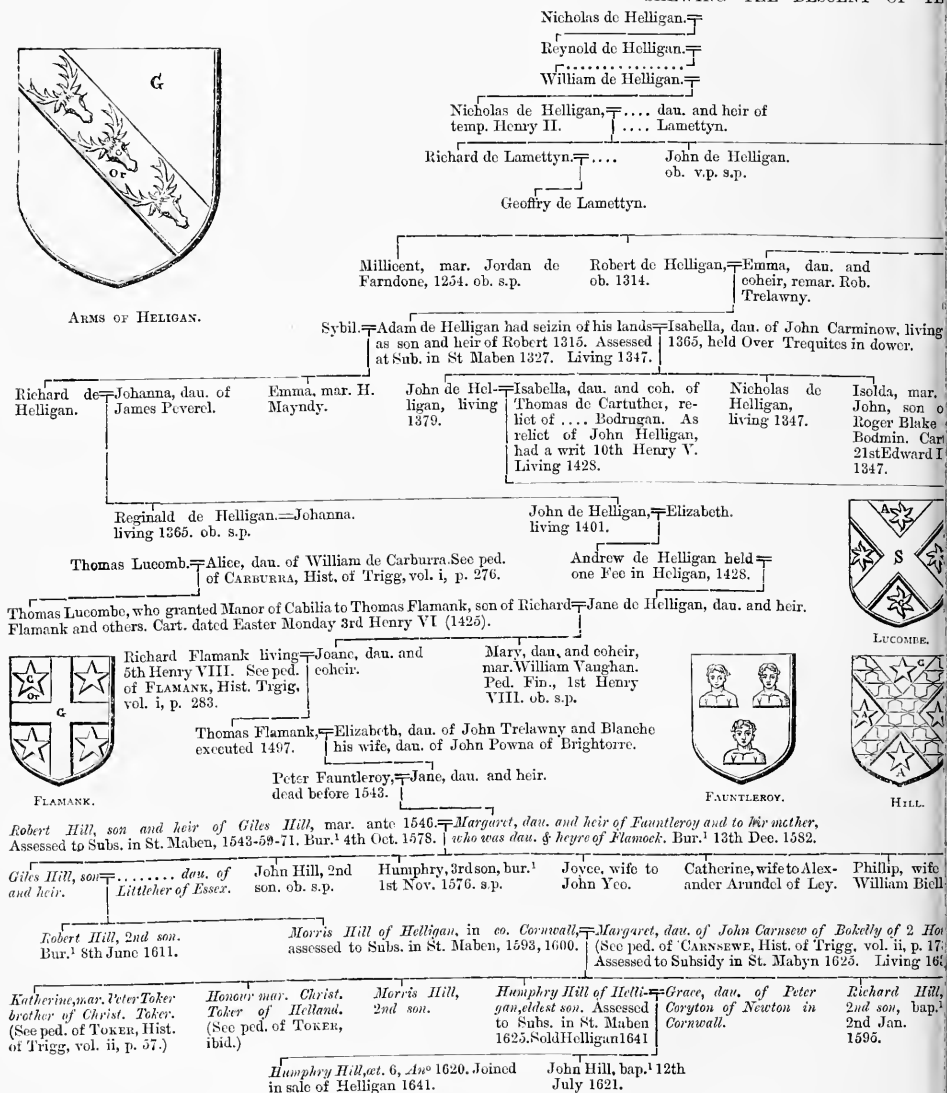 SHEWING THE DESCENT OF
Nicholas de Helligan.
Reynold de Helligan.
William de Helligan.
Nicholas de Helligan, .... dau. and heir of
temp. Henry II. .... Lamettyn.
Richard de Lamettyn. .... John de Helligan.
ob. v.p. s.p.
Geoffry de Lamettyn.
G
Or
ARMS OF HELIGAN.
Millicent, mar. Jordan de
Farndone, 1254. ob. s.p.
Robert de Helligan,
ob. 1314.
Emma, dau. and
coheir, remar. Rob.
Trelawny.
Sybil.
Adam de Helligan had seizin of his lands
as son and heir of Robert 1315. Assessed
at Sub. in St Maben 1327. Living 1347.
Isabella, dau. of John Carminow, living
1365, held Over Trequites in dower.
Richard de
Helligan.
Johanna, dau. of
James Peverel.
Emma, mar. H.
Mayndy.
John de Hel-
ligan, living
1379.
Isabella, dau. and coh. of
Thomas de Cartuther, re-
lict of .... Bodrugan. As
relict of John Helligan,
had a writ 10th Henry V.
Living 1428.
Nicholas de
Helligan,
living 1347.
Isolda, mar.
John, son
Roger Blake
Bodmin.
21st Edward
1347.
Reginald de Helligan. Johanna.
living 1365. ob. s.p.
John de Helligan, Elizabeth.
living 1401.
Thomas Lucomb. Alice, dau. of William de Carburra. See ped.
of CARBURRA, Hist. of Trigg, vol. i, p. 276.
Andrew de Helligan held
one Fee in Heligan, 1428.
A
S
LUCOMBE.
Thomas Lucombe, who granted Manor of Cabilia to Thomas Flamank, son of Richard
Flamank and others. Cart. dated Easter Monday 3rd Henry VI (1425).
Jane de Helligan, dau. and heir.
G
Or
G
FLAMANK.
Richard Flamank living
5th Henry VIII. See ped.
of FLAMANK, Hist. Trgig,
vol. i, p. 283.
Joane, dau. and
coheir.
Mary, dau. and coheir,
mar. William Vaughan.
Ped. Fin., 1st Henry
VIII. ob. s.p.
Thomas Flamank,
executed 1497.
Elizabeth, dau. of John Trelawny and Blanche
his wife, dau. of John Powna of Brightorre.
Peter Fauntleroy,
dead before 1543.
Jane, dau. and heir.
FAUNTLEROY.
G
A
A
HILL.
Robert Hill, son and heir of Giles Hill, mar. ante 1546.
Assessed to Subs. in St. Maben, 1543-59-71. Bur.¹ 4th Oct. 1578.
Margaret, dau. and heir of Fauntleroy and to hir mother,
who was dau. & heyre of Flamock. Bur.¹ 13th Dec. 1582.
Giles Hill, son
and heir.
........ dau. of
Littleher of Essex.
John Hill, 2nd
son. ob. s.p.
Humphry, 3rd son, bur.¹
1st Nov. 1576. s.p.
Joyce, wife to
John Yeo.
Catherine, wife to Alex-
ander Arundel of Ley.
Phillip, wife
William
Robert Hill, 2nd son.
Bur.¹ 8th June 1611.
Morris Hill of Helligan, in co. Cornwall,
assessed to Subs. in St. Maben, 1593, 1600.
Margaret, dau. of John Carnsew of Bokelly of 2
(See ped. of CARNSEWE, Hist. of Trigg, vol. ii, p.
Assessed to Subsidy in St. Mabyn 1625. Living
Katherine, mar. Peter Toker
brother of Christ. Toker.
(See ped. of TOKER, Hist.
of Trigg, vol. ii, p. 57.)
Honour mar. Christ.
Toker of Helland.
(See ped. of TOKER,
ibid.)
Morris Hill,
2nd son.
Humphry Hill of Helli-
gan, eldest son. Assessed
to Subs. in St. Maben
1625. Sold Helligan 1641
Grace, dau. of Peter
Coryton of Newton in
Cornwall.
Richard Hill,
2nd son, bap.¹
2nd Jan.
1595.
Humphry Hill, æt. 6, Anº 1620. Joined
in sale of Helligan 1641.
John Hill, bap.¹ 12th
July 1621.